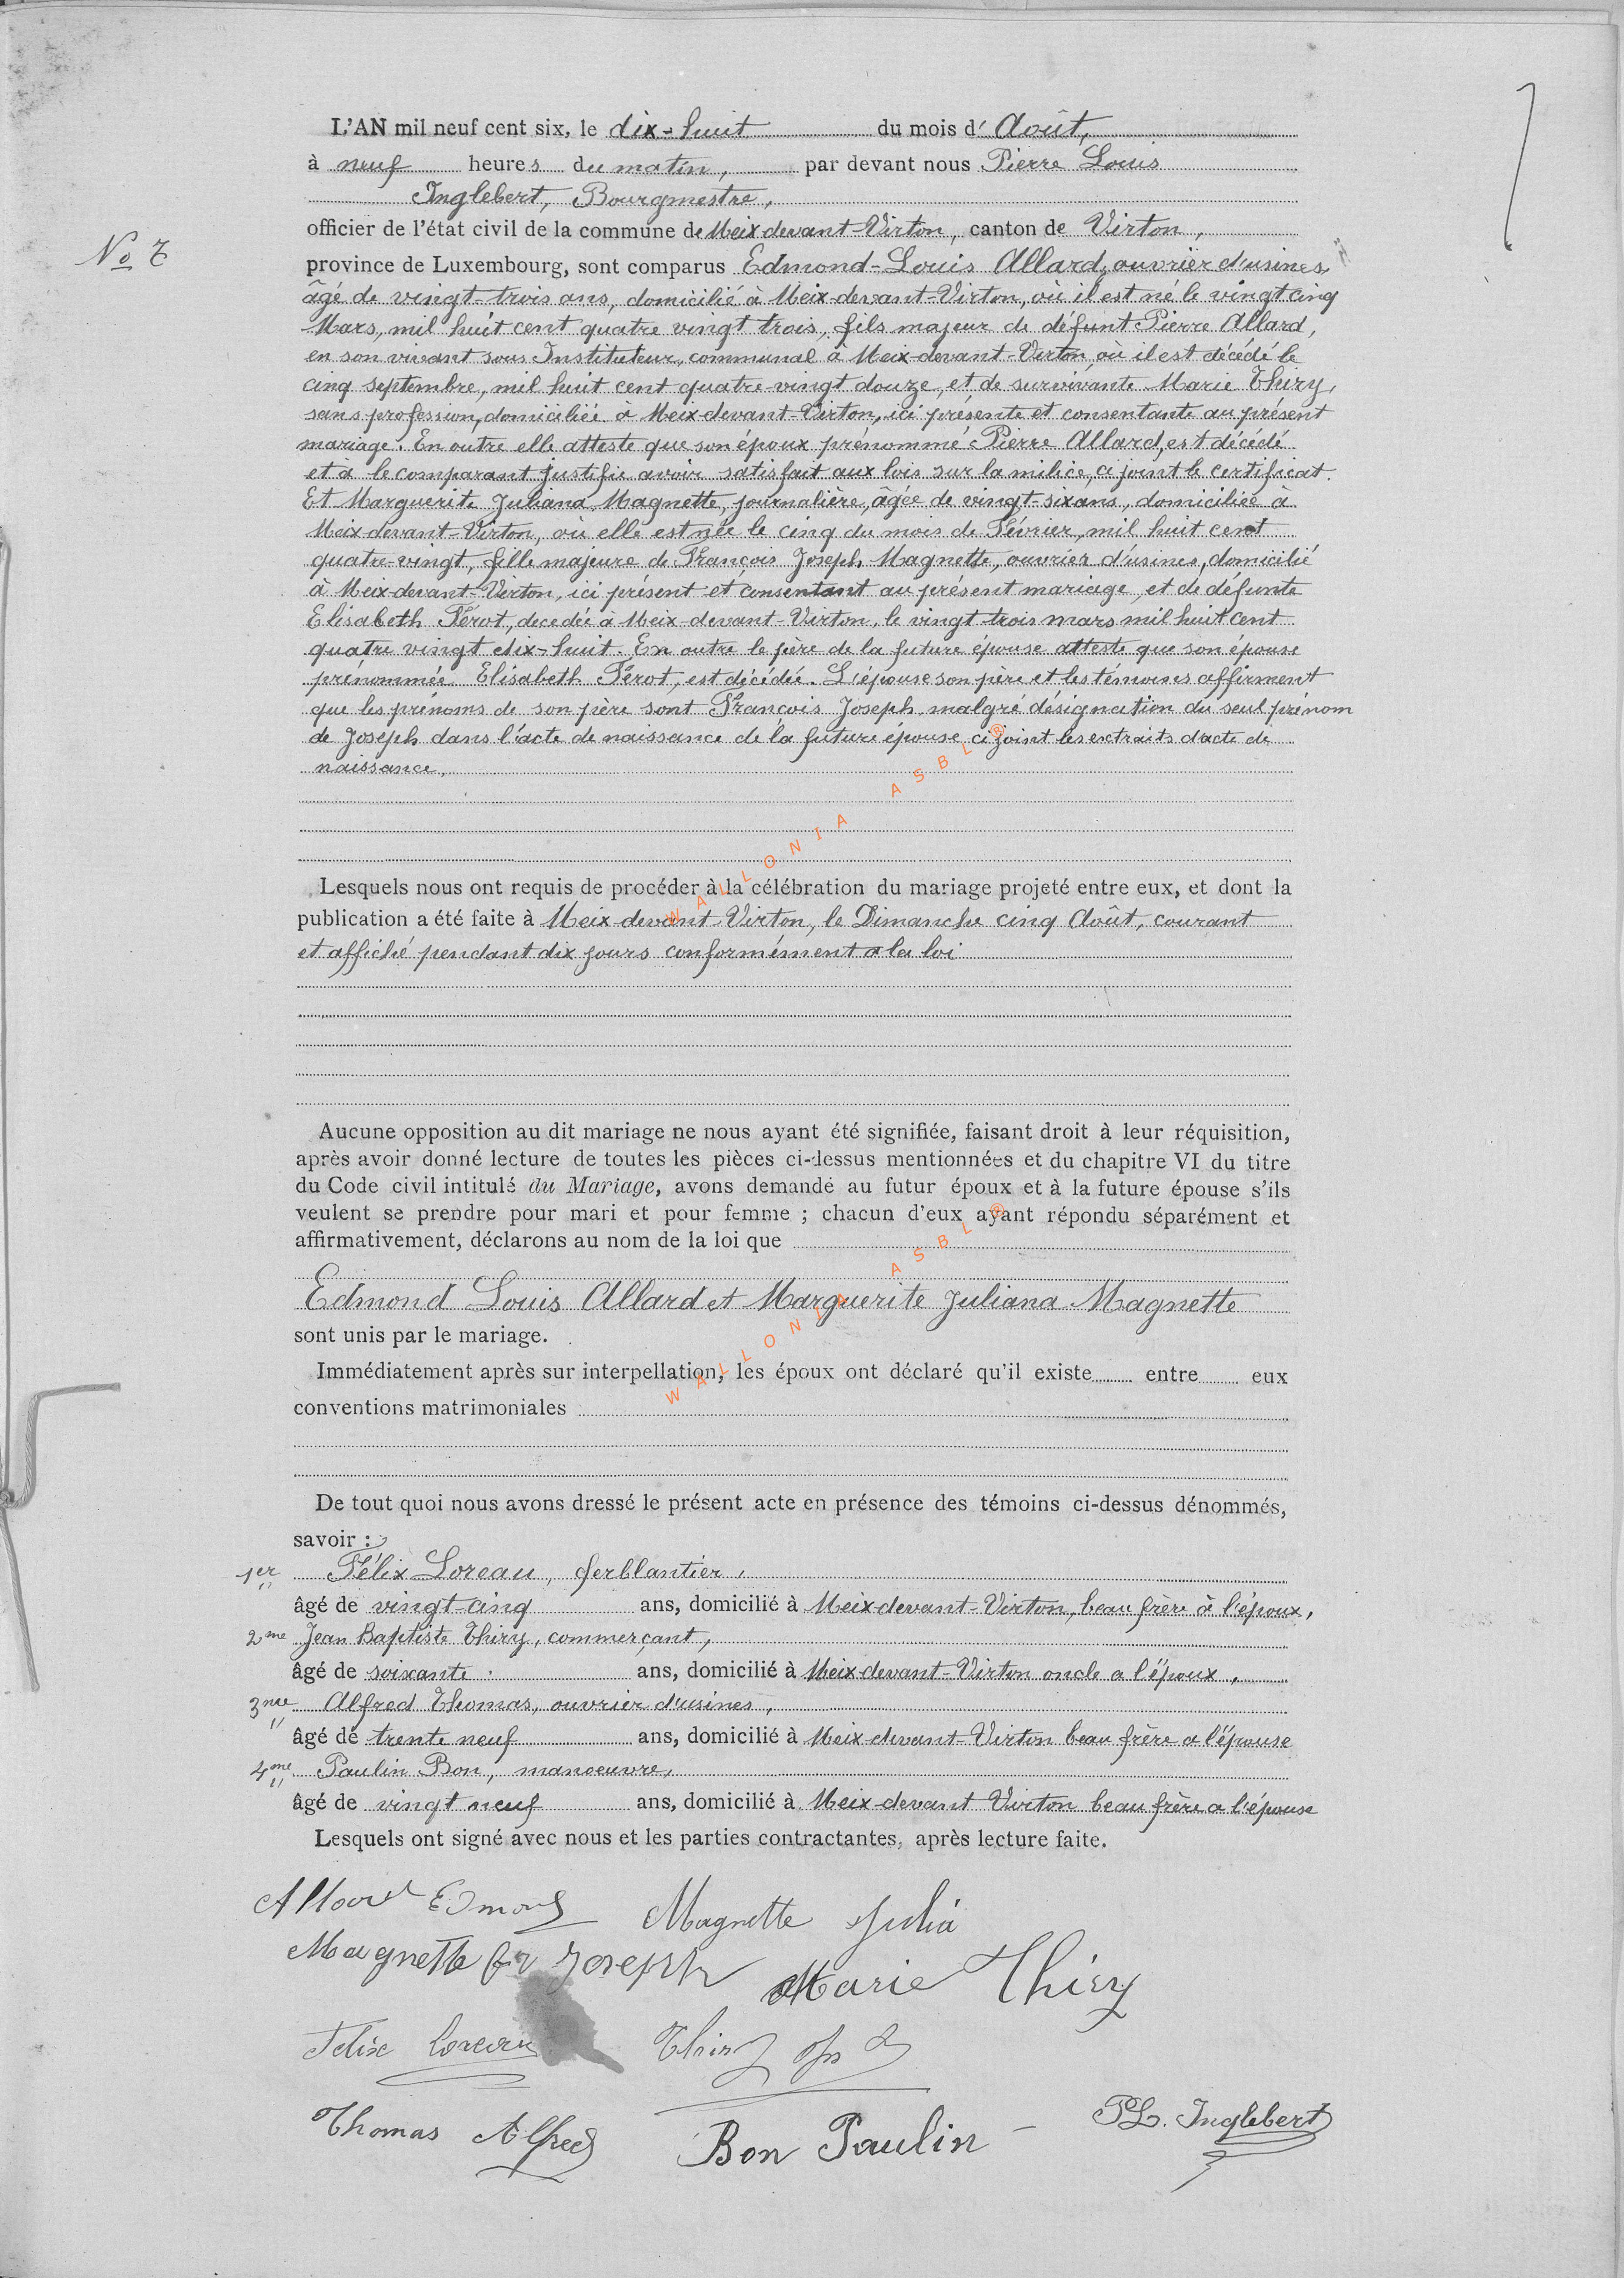 L'AN mil neuf cent six, le dix-huit du mois d' Août,
à neuf heures du matin, par devant nous Pierre Louis
Inglebert, Bourgmestre,
officier de l'état civil de la commune de Meix devant-Virton, canton de Virton,
No 7
province de Luxembourg, sont comparus Edmond-Louis Allard, ouvrier d'usines,
âgé de vingt-trois ans, domicilié à Meix-devant-Virton, où il est né le vingt cinq
Mars, mil huit cent quatre vingt trois, fils majeur de défunt Pierre Allard,
en son vivant sous Instituteur, communal à Meix-devant-Virton où il est décédé le
cinq septembre, mil huit cent quatre-vingt douze, et de survivante Marie Thiry,
sans profession, domiciliée à Meix-devant-Virton, ici présente et consentante au présent
mariage. En outre elle atteste que son époux prénommé Pierre Allard, est décédé
et à le comparant justifié avoir satisfait aux lois sur la milice, ci joint le certificat.
Et Marguerite Juliana Magnette, journalière, âgée de vingt-six ans, domiciliée à
Meix-devant-Virton, où elle est née le cinq du mois de Février, mil huit cent
quatre-vingt, fille majeure de François Joseph Magnette, ouvrier d'usines, domicilié
à Meix-devant-Virton, ici présent et consentant au présent mariage, et de défunte
Elisabeth Férot, decedée à Meix-devant-Virton, le vingt trois mars mil huit cent
quatre vingt dix-huit. En outre le père de la future épouse atteste que son épouse
prénommée Elisabeth Férot, est décédée. L'épouse son père et les témoins affirment
que les prénoms de son père sont François Joseph malgré désignation du seul prénom
de Joseph dans l'acte de naissance de la future épouse ci joint les extraits d'acte de
naissance.
WALLONIA ASBL ®
Lesquels nous ont requis de procéder à la célébration du mariage projeté entre eux, et dont la
publication a été faite à Meix-devant-Virton, le Dimanche cinq Août, courant
et affiché pendant dix jours conformément a la loi
Aucune opposition au dit mariage ne nous ayant été signifiée, faisant droit à leur réquisition,
après avoir donné lecture de toutes les pièces ci-dessus mentionnées et du chapitre VI du titre
du Code civil intitulé du Mariage, avons demandé au futur époux et à la future épouse s'ils
veulent se prendre pour mari et pour femme ; chacun d'eux ayant répondu séparément et
affirmativement, déclarons au nom de la loi que
Edmond Louis Allard et Marguerite Juliana Magnette
sont unis par le mariage.
WALLONIA ASBL ®
Immédiatement après sur interpellation, les époux ont déclaré qu'il existe entre eux
conventions matrimoniales
De tout quoi nous avons dressé le présent acte en présence des témoins ci-dessus dénommés,
savoir :
1er Félix Loreau, ferblantier,
âgé de vingt-cinq ans, domicilié à Meix-devant-Virton, beau frère à l'époux,
2me Jean Baptiste Thiry, commerçant,
âgé de soixante ans, domicilié à Meix-devant-Virton oncle a l'époux,
3me Alfred Thomas, ouvrier d'usines,
âgé de trente neuf ans, domicilié à Meix-devant-Virton beau frère a l'épouse
4me Paulin Bon, manoeuvre,
âgé de vingt neuf ans, domicilié à Meix-devant Virton beau frère a l'épouse
Lesquels ont signé avec nous et les parties contractantes, après lecture faite.
Allard Edmond Magnette Julia
Magnette fr Joseph Marie Thiry
Felix Loreau Thiry
Thomas Alfred Bon Paulin PL. Inglebert